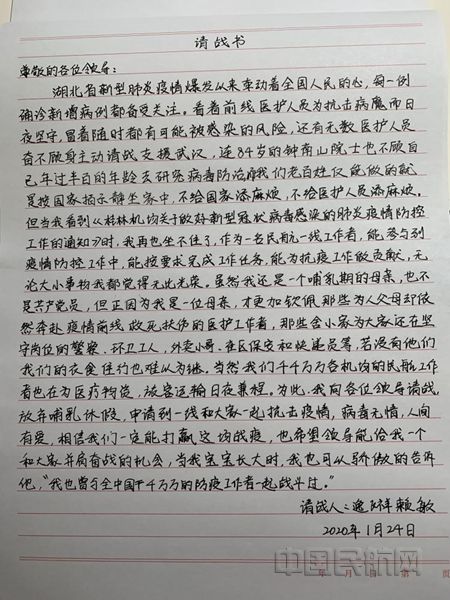 请战书
尊敬的各位领导：
湖北省新型肺炎疫情爆发以来牵动着全国人民的心，每一例
确诊新增病例都备受关注。看着前线医护人员为抗击病魔而日
夜坚守，冒着随时都有可能被感染的风险，还有无数医护人员
奋不顾身主动请战支援武汉，连84岁的钟南山院士也不顾自
己年过半百的年龄去研究病毒防治。我们老百姓仅能做的就
是按国家指示静坐家中，不给国家添麻烦，不给医护人员添麻烦。
但当我看到《桂林机场关于做好新型冠状病毒感染的肺炎疫情防控
工作的通知》时，我再也坐不住了，作为一名民航一线工作者，能参与到
疫情防控工作中，能按要求完成工作任务，能为抗疫工作做贡献，无
论大小事物我都觉得无比光荣。虽然我还是一个哺乳期的母亲，也不
是共产党员，但正因为我是一位母亲，才更加钦佩那些为人父母却依
然奔赴疫情前线救死扶伤的医护工作者，那些舍小家为大家还在坚
守岗位的警察、环卫工人，外卖小哥、社区保安和快递员等，若没有他们
我们的衣食住行也难以为继。当然我们千千万万各机场的民航工作
者也在为医疗物资，旅客运输日夜兼程。为此，我向各位领导请战，
放弃哺乳休假，申请到一线和大家一起抗击疫情，病毒无情，人间
有爱，相信我们一定能打赢这场战疫，也希望领导能给我一个
和大家并肩奋战的机会，当我宝宝长大时，我也可以骄傲的告诉
他，“我也曾与全中国千千万万的防疫工作者一起战斗过。”
请战人：逄祥赖敏
2020年1月24日
中国民航网
年 月 日 第 页